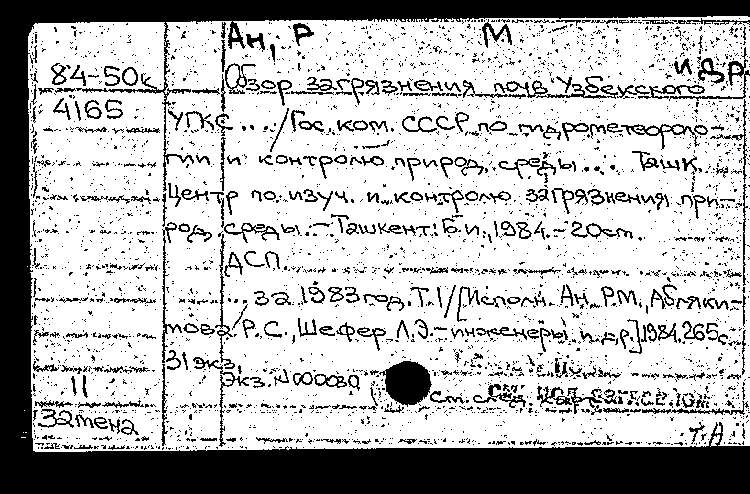 Ан, Р М и др
84-50к Обзор загрязнения почв Узбекского
4165 УГКС .../Гос. ком. СССР по гидрометеороло-
гии и контролю природ. среды... Ташк.
Центр по изуч. и контролю загрязнения при-
род. среды. - Ташкент: Б.и., 1984. - 20см.
ДСП.
... за 1983 год. Т.1/[Исполн. Ан. Р.М., Абляки-
мова Р.С., Шефер Л.Э. - инженеры и др.] 1984. 265с
31 экз.
Экз. №000030
11 Ст. след.
замена
Т.А